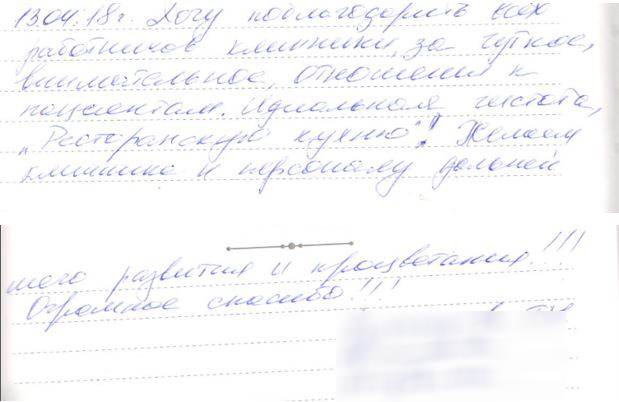 13.04.18г. Хочу поблагодарить всех
работников клиники, за чуткое,
внимательное, отношения к
пациентам. Идиальная чистота,
„Ресторанскую кухню"! Желаем
клинике и персоналу дальней
шего развития и процветания!!!
Огромное спасибо!!!